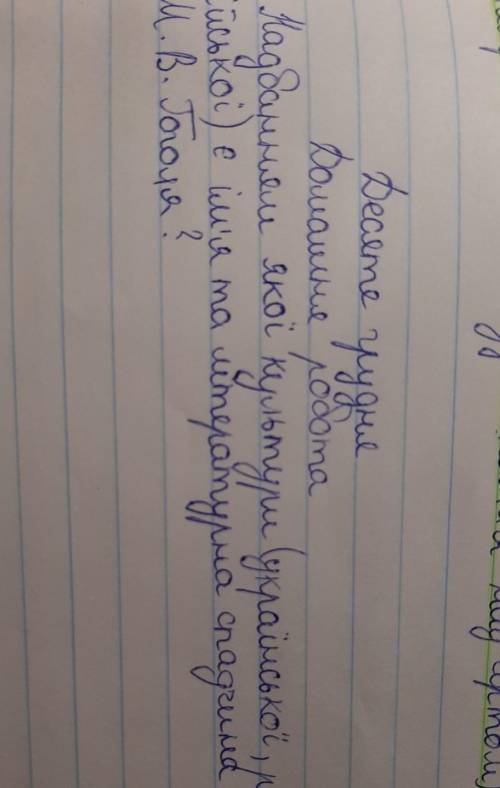 Десяте грудня
Домашня робота
Надбанням якої культури (української, р
ійської) є ім'я та літературна спадчина
М. В. Гоголя?